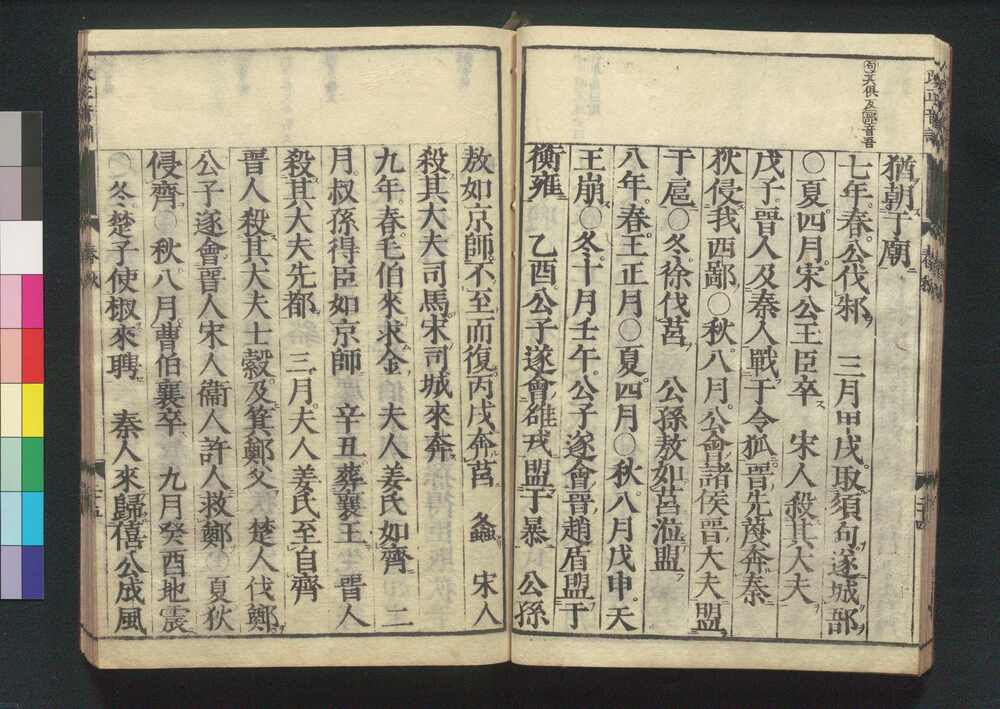 句其俱反郚音吾
猶朝于廟
七年春公伐邾　三月甲戌取須句遂城郚
○夏四月宋公王臣卒　宋人殺其大夫
戊子晉人及秦人戰于令狐晉先蔑奔秦
狄侵我西鄙○秋八月公會諸侯晉大夫盟
于扈○冬徐伐莒　公孫敖如莒涖盟
八年春王正月○夏四月○秋八月戊申天
王崩○冬十月壬午公子遂會晉趙盾盟于
衡雍　乙酉公子遂會雒戎盟于暴　公孫
敖如京師不至而復丙戌奔莒　螽　宋人
殺其大夫司馬宋司城來奔
九年春毛伯來求金　夫人姜氏如齊　二
月叔孫得臣如京師　辛丑葬襄王　晉人
殺其大夫先都　三月夫人姜氏至自齊
晉人殺其大夫士縠及箕鄭父　楚人伐鄭
公子遂會晉人宋人衞人許人救鄭○夏狄
侵齊○秋八月曹伯襄卒　九月癸酉地震
○冬楚子使椒來聘　秦人來歸僖公成風
春秋